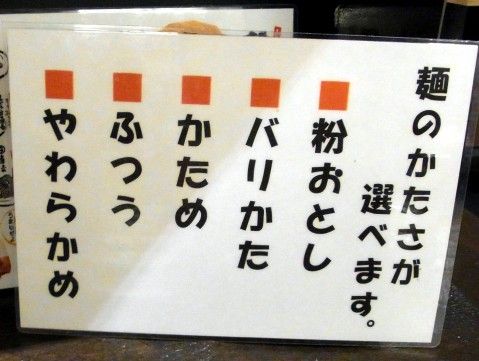 麺のかたさが
選べます。
■粉おとし
■バリかた
■かため
■ふつう
■やわらかめ